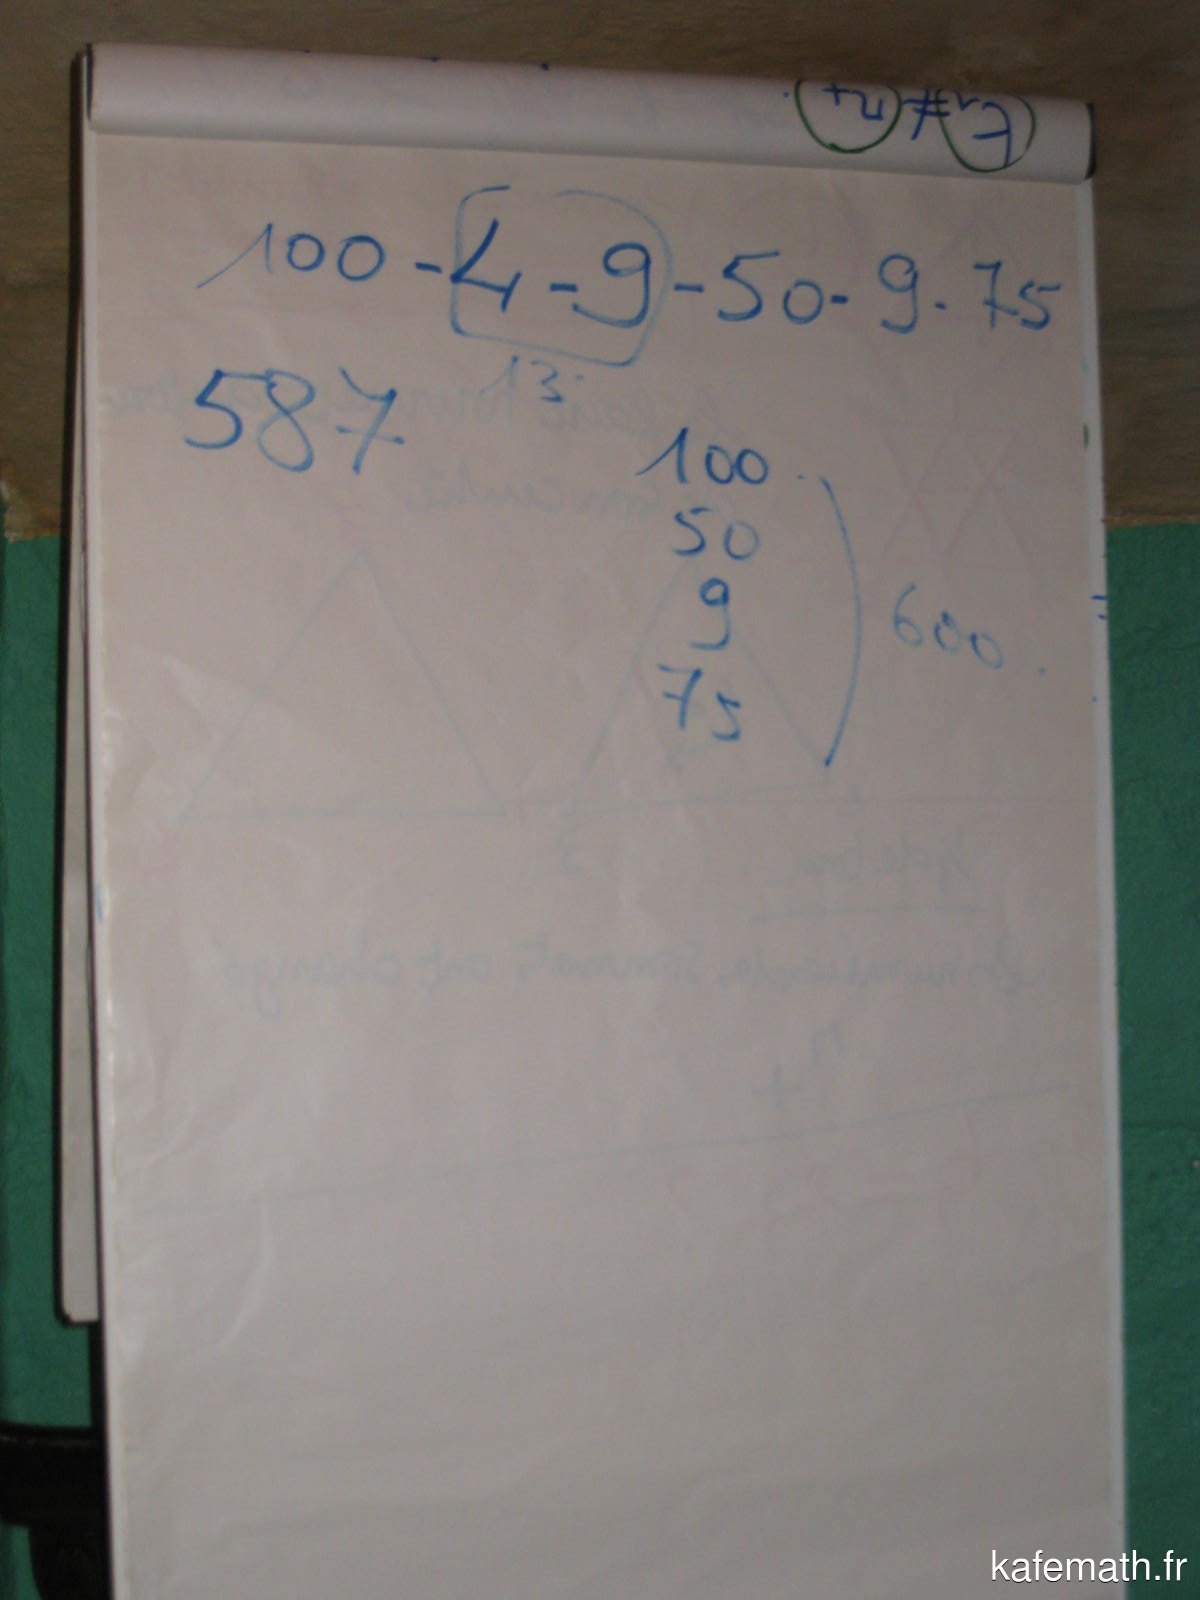 100 - 4 - 9 - 50 - 9 - 75
13
587
100
50
9
75
600
kafemath.fr